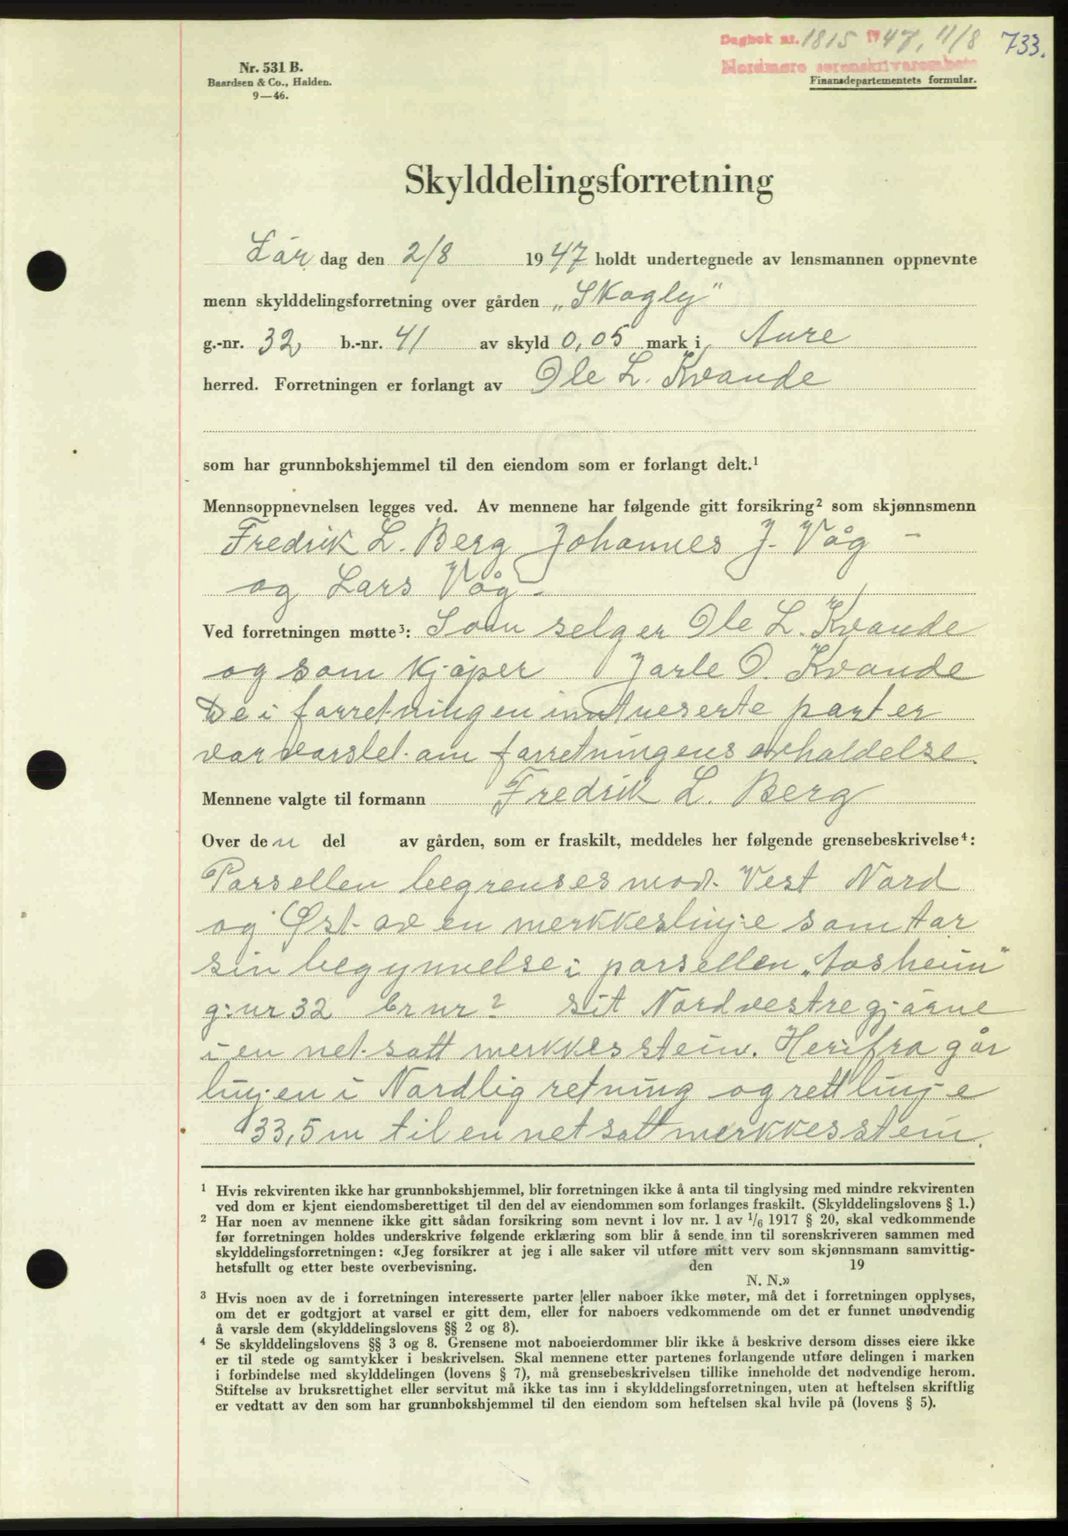 Dagbok nr. 1815 1947, 11/8 733.
Nordmøre sorenskriverembete
Nr. 531 B.
Baardsen & Co., Halden.
9—46.
Finansdepartementets formular.
Skylddelingsforretning
Lör dag den 2/8 1947 holdt undertegnede av lensmannen oppnevnte
menn skylddelingsforretning over gården „Skogly"
g.-nr. 32 b.-nr. 41 av skyld 0,05 mark i Aure
herred. Forretningen er forlangt av Ole L. Kvande
som har grunnbokshjemmel til den eiendom som er forlangt delt.¹
Mennsoppnevnelsen legges ved. Av mennene har følgende gitt forsikring² som skjønnsmenn
Fredrik L. Berg Johannes J. Våg -
og Lars Våg -
Ved forretningen møtte³: Som selger Ole L. Kvande
og som kjøper Jarle O. Kvande
De i forretningen inntreserte parter
var varslet om forretningens avholdelse.
Mennene valgte til formann Fredrik L. Berg
Over den del av gården, som er fraskilt, meddeles her følgende grensebeskrivelse⁴:
Parsellen begrenses mod. Vest Nord
og Øst. av en merkkeslinje som tar
sin begynnelse i parsellen „Aasheim"
g:nr 32 br nr ? sit Nordvestre gjärne
i en net.satt merkkesstein. Herifra går
linjen i Nordlig retning og rett linje
33,5 m til en netsatt merkkesstein.
¹ Hvis rekvirenten ikke har grunnbokshjemmel, blir forretningen ikke å anta til tinglysing med mindre rekvirenten
ved dom er kjent eiendomsberettiget til den del av eiendommen som forlanges fraskilt. (Skylddelingslovens § 1.)
² Har noen av mennene ikke gitt sådan forsikring som nevnt i lov nr. 1 av 1/6 1917 § 20, skal vedkommende
før forretningen holdes underskrive følgende erklæring som blir å sende inn til sorenskriveren sammen med
skylddelingsforretningen: «Jeg forsikrer at jeg i alle saker vil utføre mitt verv som skjønnsmann samvittig-
hetsfullt og etter beste overbevisning. den 19
N. N.»
³ Hvis noen av de i forretningen interesserte parter (eller naboer ikke møter, må det i forretningen opplyses,
om det er godtgjort at varsel er gitt dem, eller for naboers vedkommende om det er funnet unødvendig
å varsle dem (skylddelingslovens §§ 2 og 8).
⁴ Se skylddelingslovens §§ 3 og 8. Grensene mot naboeierdommer blir ikke å beskrive dersom disses eiere ikke
er til stede og samtykker i beskrivelsen. Skal mennene etter partenes forlangende utføre delingen i marken
i forbindelse med skylddelingen (lovens § 7), må grensebeskrivelsen tillike inneholde det nødvendige herom.
Stiftelse av bruksrettighet eller servitut må ikke tas inn i skylddelingsforretningen, uten at heftelsen skriftlig
er vedtatt av den som har grunnbokshjemmel til den eiendom som heftelsen skal hvile på (lovens § 5).